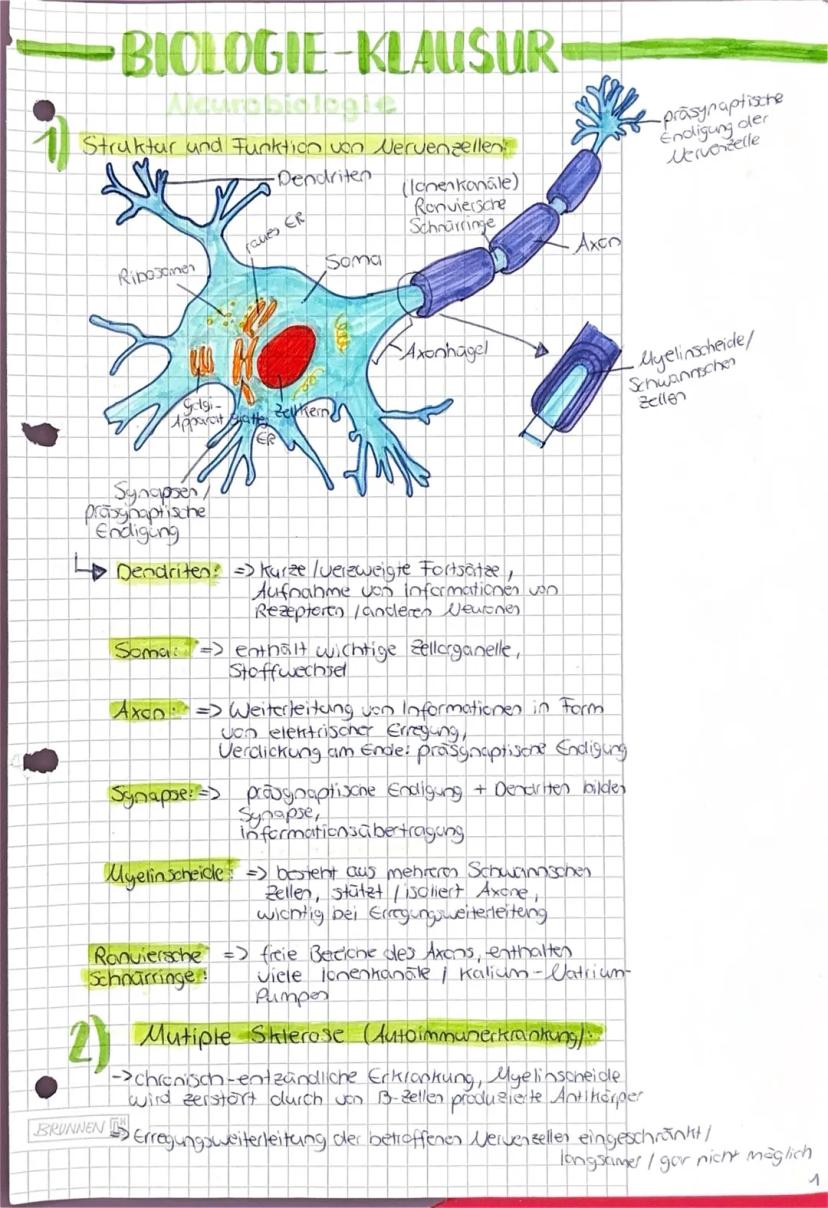 BIOLOGIE-KLAUSUR
Neurobiologie
1) Struktur und Funktion von Nervenzellen:
präsynaptische
Endigung der
Nervenzelle
Dendriten
(Ionenkanäle)
Ranviersche
Schnürringe
raues ER
Axon
Soma
Ribosomen
Axonhügel
Myelinscheide/
Schwannschen
Zellen
Golgi-
Apparat
glattes
ER
Zellkern
Synapsen/
präsynaptische
Endigung
Dendriten: => kurze/verzweigte Fortsätze,
Aufnahme von Informationen von
Rezeptoren/anderen Neuronen
Soma: => enthält wichtige Zellorganelle,
Stoffwechsel
Axon: => Weiterleitung von Informationen in Form
von elektrischer Erregung,
Verdickung am Ende: präsynaptische Endigung
Synapse: => präsynaptische Endigung + Dendriten bilden
Synapse,
Informationsübertragung
Myelinscheide: => besteht aus mehreren Schwannschen
Zellen, stützt/isoliert Axone,
wichtig bei Erregungsweiterleitung
Ranviersche => freie Bereiche des Axons, enthalten
Schnürringe: viele Ionenkanäle; Kalium-Natrium-
Pumpen
2) Mutiple Sklerose (Autoimmunerkrankung):
-> chronisch-entzündliche Erkrankung, Myelinscheide
wird zerstört durch von B-Zellen produzierte Antikörper
BRUNNEN
=> Erregungsweiterleitung der betroffenen Nervenzellen eingeschränkt/
langsamer/gar nicht möglich
1